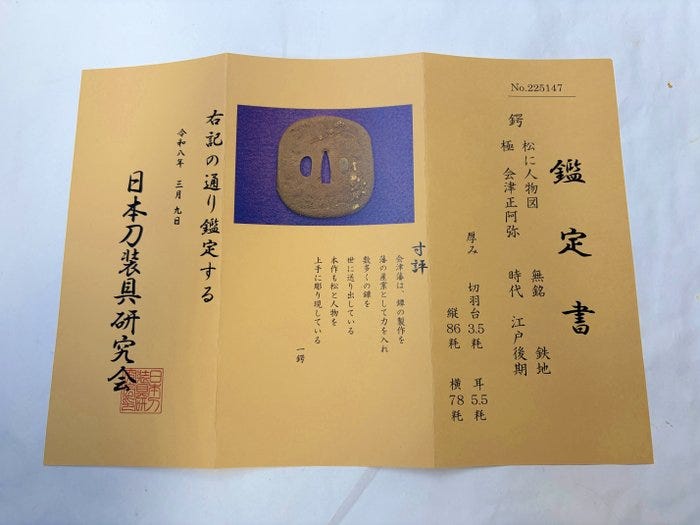 No.225147
鑑定書
鍔 松に人物図 無銘 鉄地
極 会津正阿弥 時代 江戸後期
厚み 切羽台3.5粍 耳5.5粍
縦86粍 横78粍
寸評
会津藩は、鐔の製作を
藩の産業として力を入れ
数多くの鐔を
世に送り出している
本作も松と人物を
上手に彫り現している
一鍔
右記の通り鑑定する
令和八年 三月 九日
日本刀装具研究会